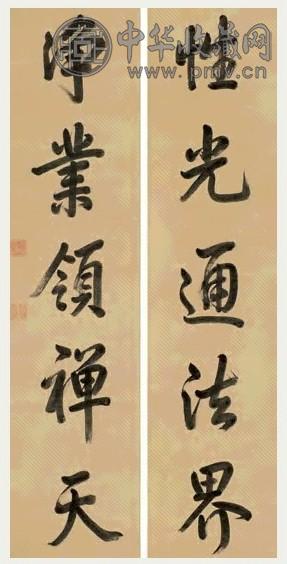 中华收藏网
www.pmv.cn
性光通法界
淨業領禅天